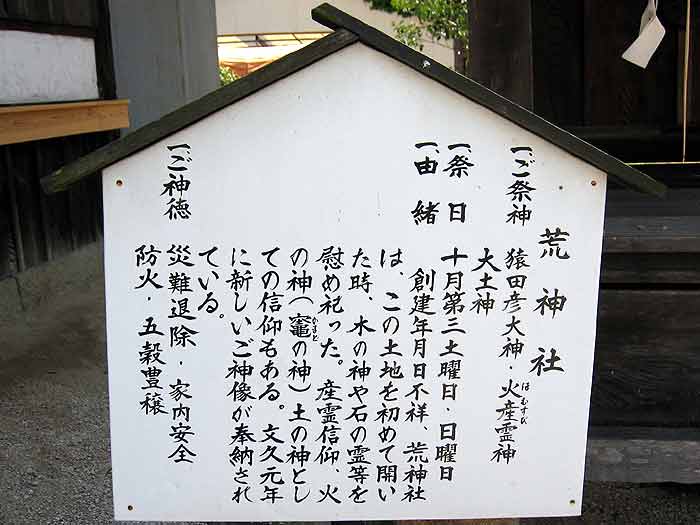 荒神社
一、ご祭神
猿田彦大神・火産霊神
ほむすび
大土神
一、祭日
十月第三土曜日・日曜日
一、由緒
創建年月日不祥、荒神社
は、この土地を初めて開い
た時、木の神や石の霊等を
慰め祀った。産霊信仰、火
の神(竈の神)土の神とし
かまど
ての信仰もある。文久元年
に新しいご神像が奉納され
ている。
一、ご神徳
災難退除・家内安全
防火・五穀豊穣